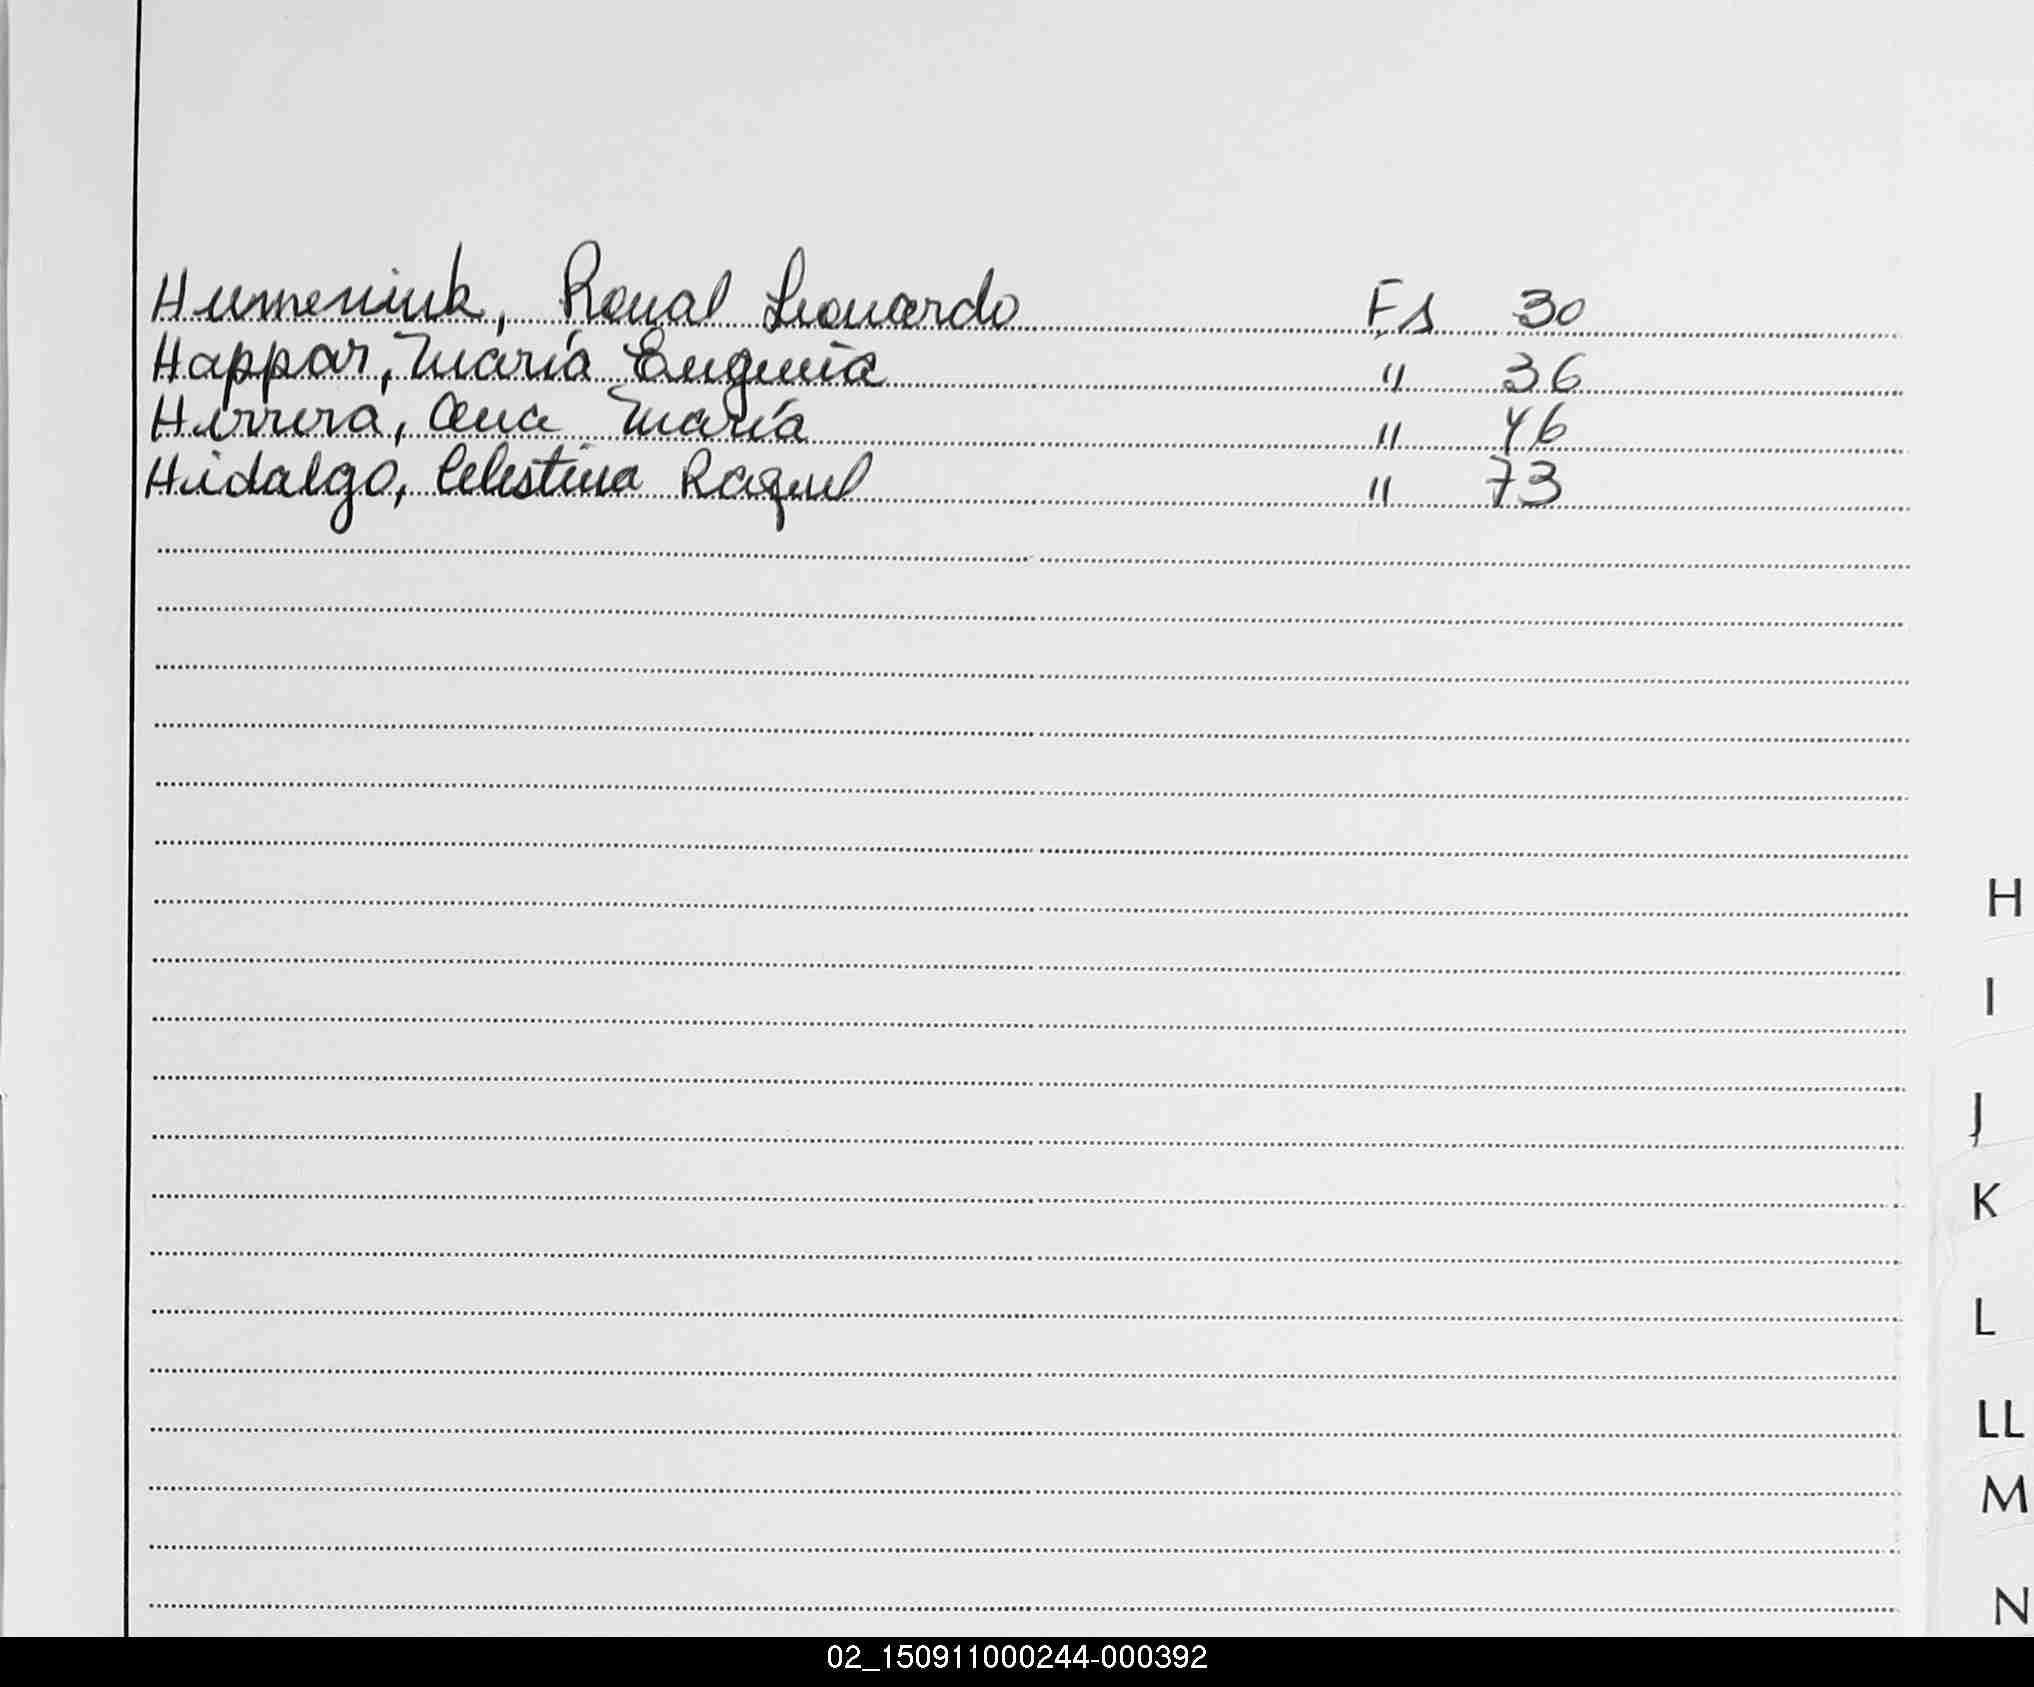 Humeniuk, Ronal Leonardo Fs 30
Happar, María Eugenia " 36
Herrera, Ana María " 46
Hidalgo, Celestina Raquel " 73
H
I
J
K
L
LL
M
N
02_150911000244-000392